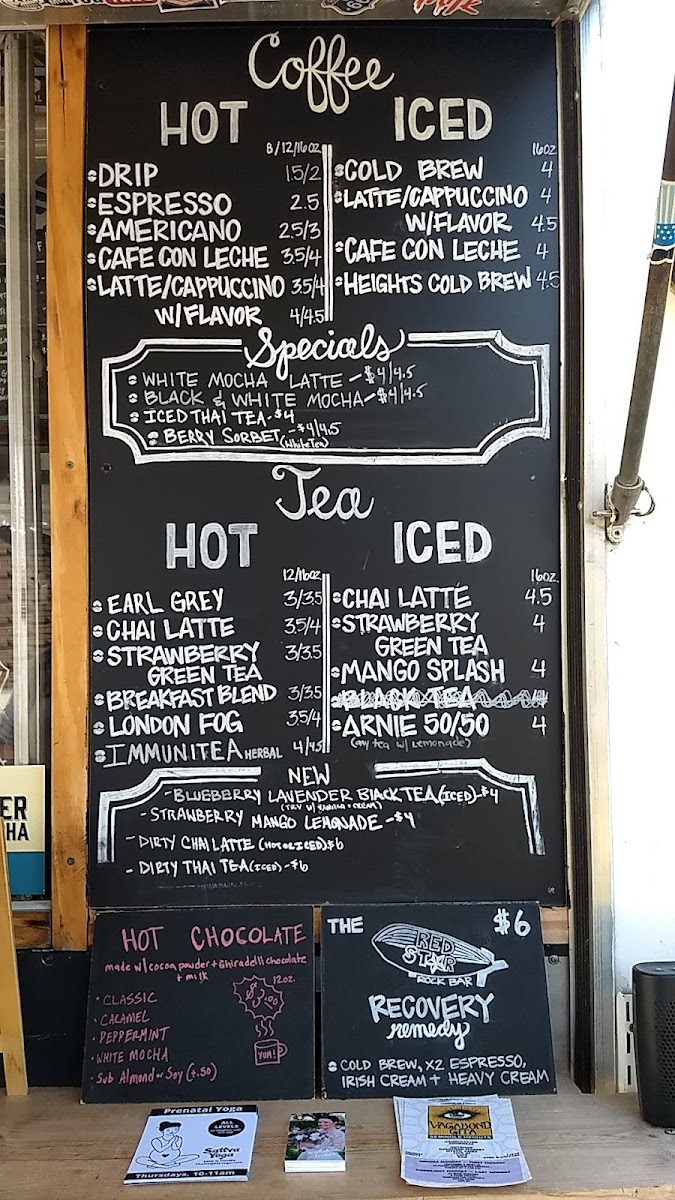 Coffee
HOT
8/12/16oz.
DRIP 1.5/2
ESPRESSO 2.5
AMERICANO 2.5/3
CAFE CON LECHE 3.5/4
LATTE/CAPPUCCINO 3.5/4
W/FLAVOR 4/4.5
ICED
16oz.
COLD BREW 4
LATTE/CAPPUCCINO 4
W/FLAVOR 4.5
CAFE CON LECHE 4
HEIGHTS COLD BREW 4.5
Specials
WHITE MOCHA LATTE - $4/4.5
BLACK & WHITE MOCHA - $4/4.5
ICED THAI TEA - $4
BERRY SORBET - $4/4.5
(White Tea)
Tea
HOT
12/16oz.
EARL GREY 3/3.5
CHAI LATTE 3.5/4
STRAWBERRY 3/3.5
GREEN TEA
BREAKFAST BLEND 3/3.5
LONDON FOG 3.5/4
IMMUNITEA HERBAL 4/4.5
ICED
16oz.
CHAI LATTE 4.5
STRAWBERRY 4
GREEN TEA
MANGO SPLASH 4
BLACK TEA 4
ARNIE 50/50 4
(any tea w/ Lemonade)
NEW
- BLUEBERRY LAVENDER BLACK TEA (ICED) - $4
(TRY W/ VANILLA + CREAM)
- STRAWBERRY MANGO LEMONADE - $4
- DIRTY CHAI LATTE (HOT OR ICED) $6
- DIRTY THAI TEA (ICED) - $6
HOT CHOCOLATE
made w/ cocoa powder + Ghiradelli chocolate
+ milk
12oz.
$3.00
• CLASSIC
• CARAMEL
• PEPPERMINT
• WHITE MOCHA
• Sub Almond or Soy (+.50)
YUM!
THE
$6
RED
STAR
ROCK BAR
RECOVERY
remedy
COLD BREW, X2 ESPRESSO,
IRISH CREAM + HEAVY CREAM
ER
HA
Prenatal Yoga
ALL
LEVELS
Sattva
Yoga
Thursdays, 10-11am
VAGABOND
GITA